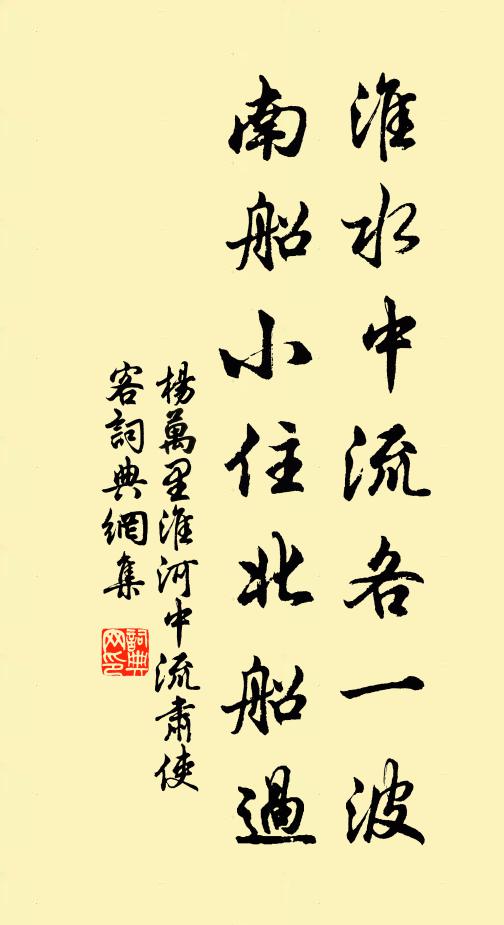 淮水中流各一波
南船小住北船過
楊萬里淮河中流肅使
客詞典網集
詞典网印